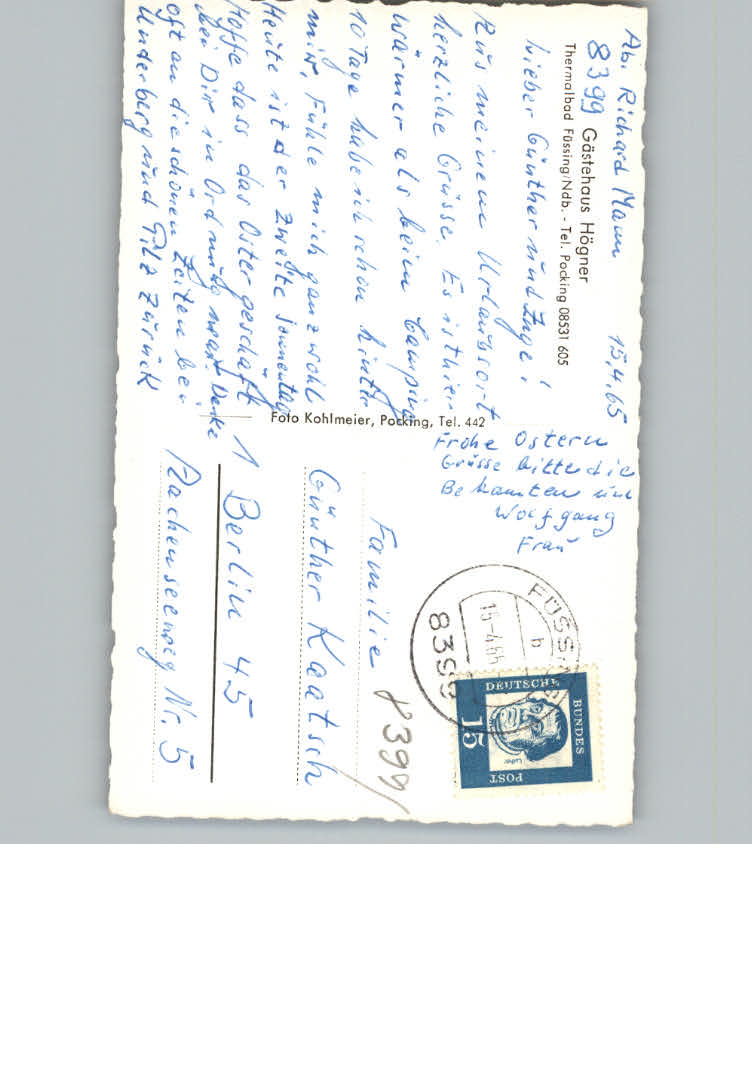 Ab. Richard Mann 15.4.65
8399 Gästehaus Högner
Thermalbad Füssing/Ndb. - Tel. Pocking 08531 605
Lieber Günther und Inge!
Aus meinem Urlaubsort
herzliche Grüsse. Es ist hier
wärmer als beim Camping
10 Tage habe ich schon hinter
mir, Fühle mich ganz wohl
Heute ist der zweite Sonnentag
Hoffe dass das Ostergeschäft
bei Dir in Ordnung war. Denke
oft an die schönen Zeiten bei
Underberg und Pilz zurück
Foto Kohlmeier, Pocking, Tel. 442
Frohe Ostern
Grüsse bitte die
Bekannten und
Wolfgang
Frau
FÜSSING
b
15-4.65
8399
DEUTSCHE
BUNDES
POST
15
Luther
8399/
Familie
Günther Kaatsch
1 Berlin 45
Nr. 5